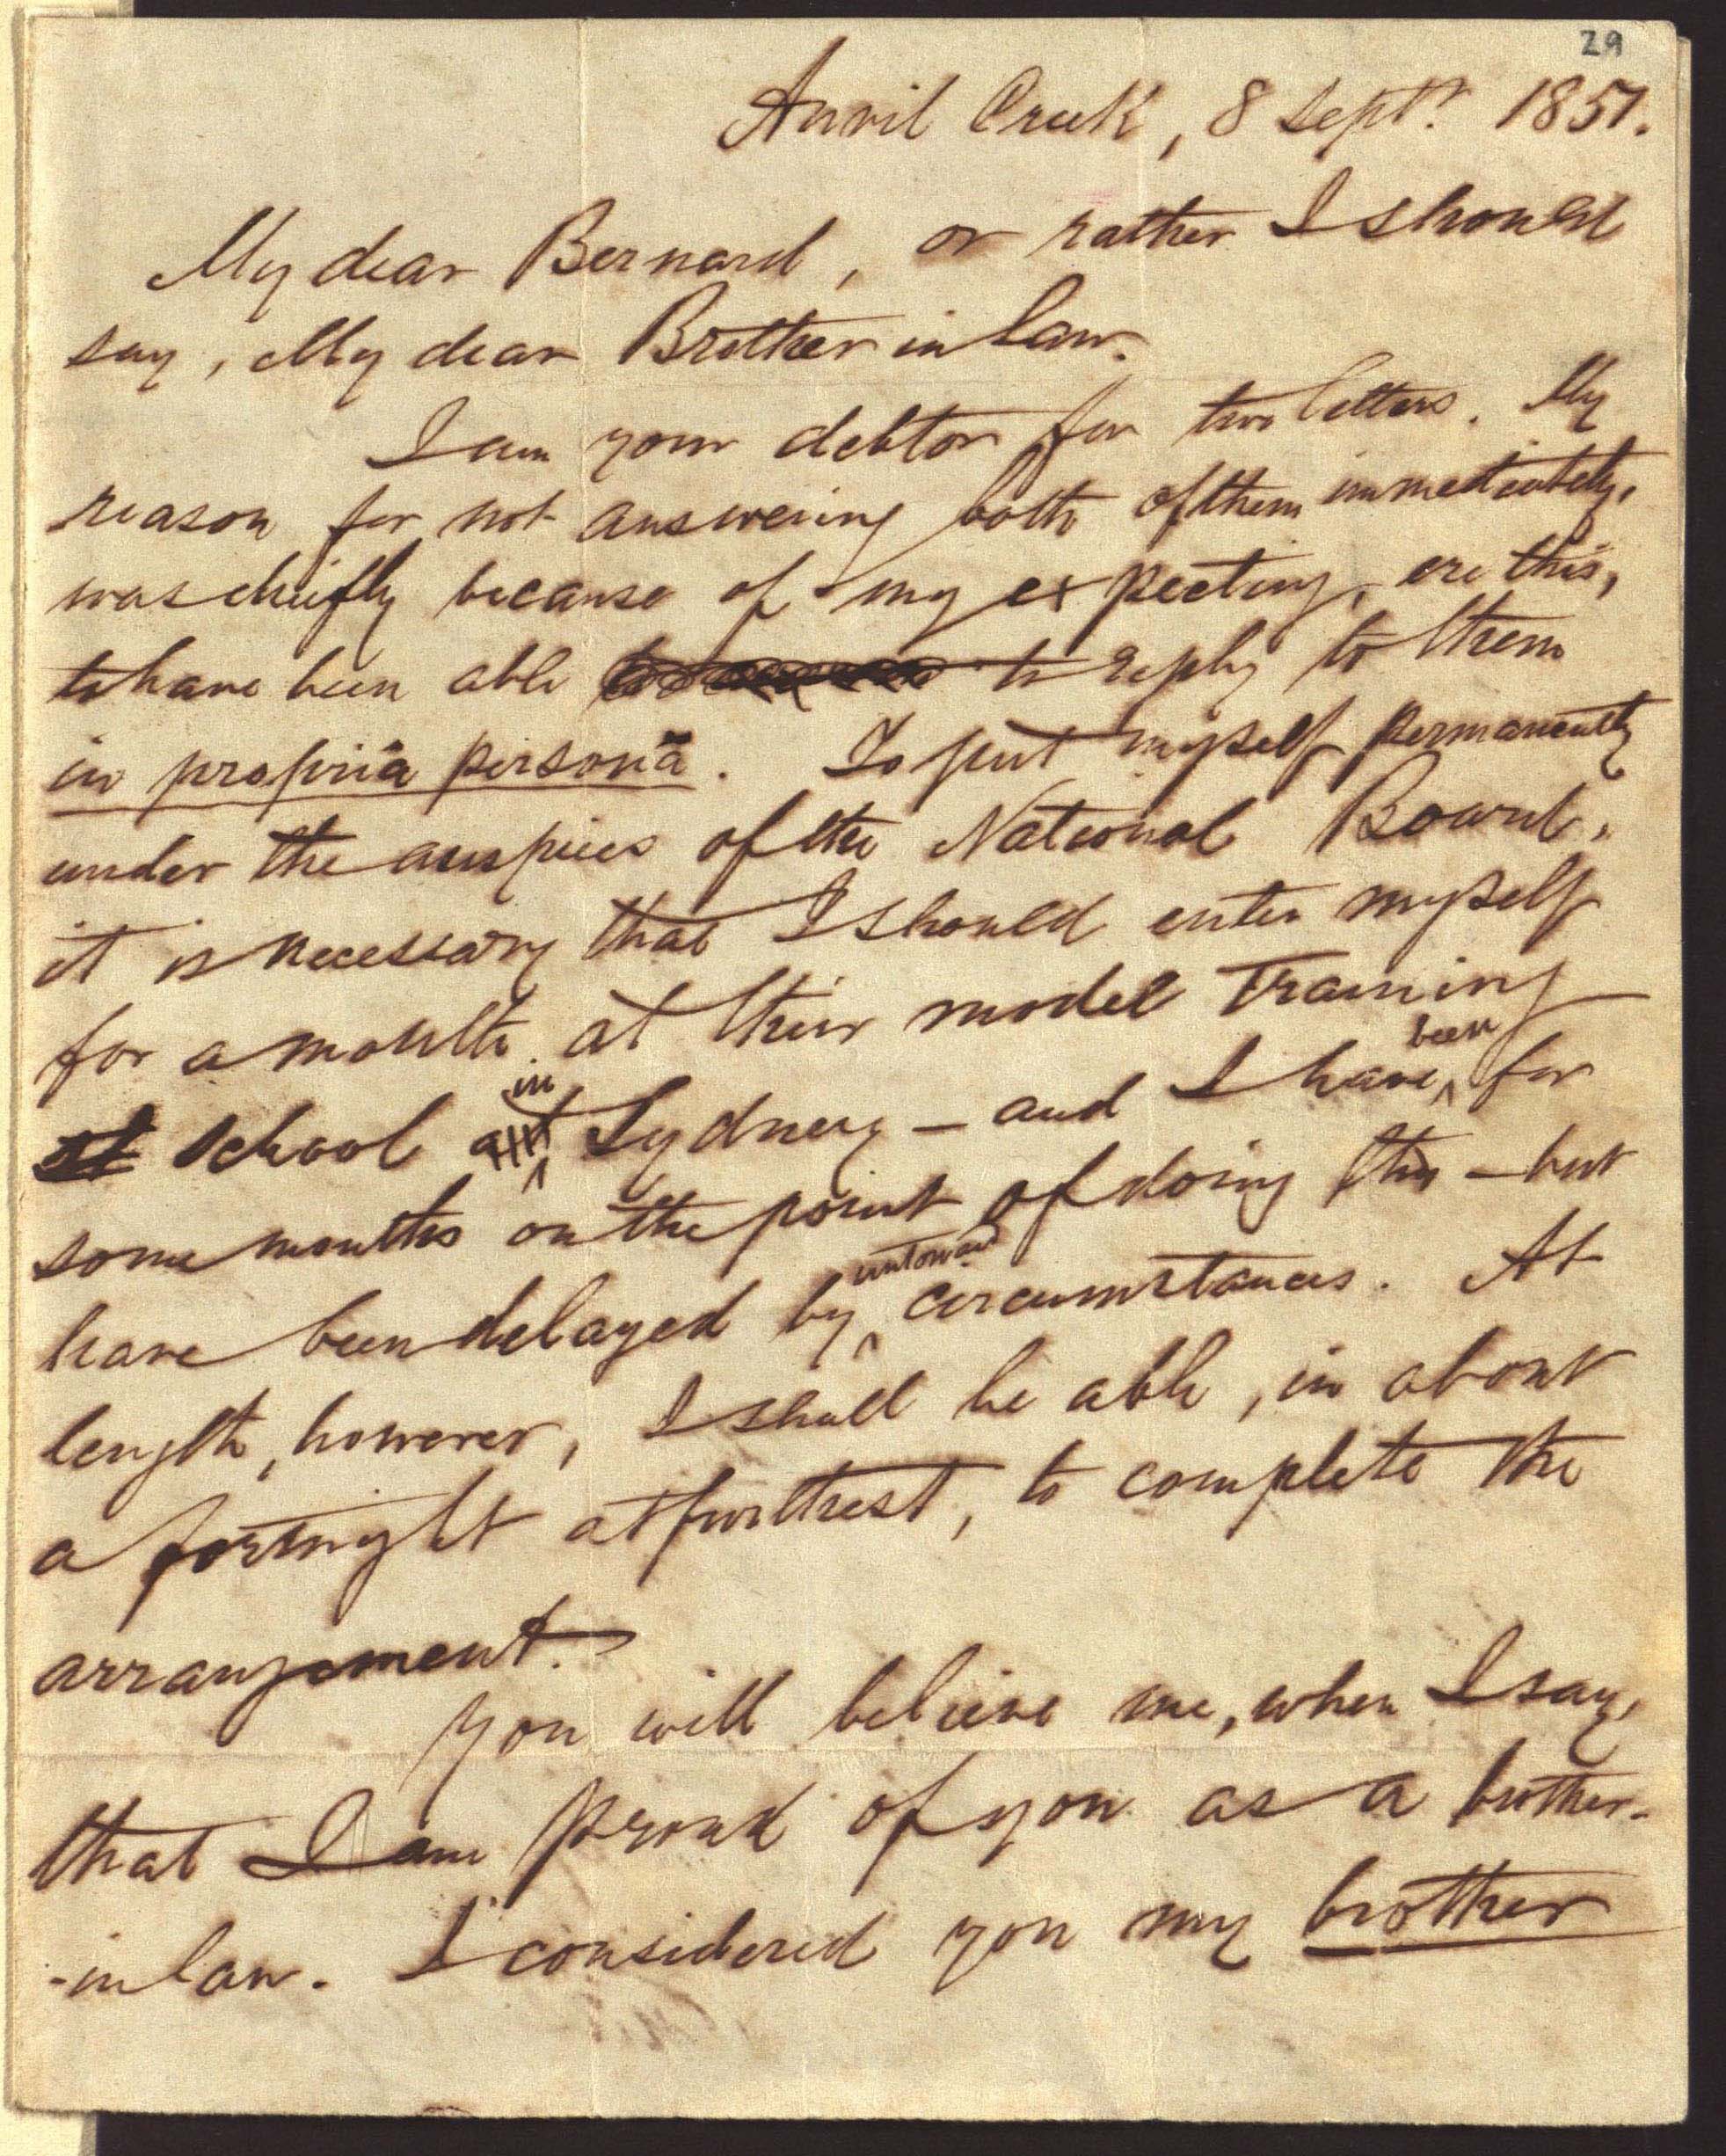 29
Anvil Creek, 8 Septr. 1857.
My dear Bernard, or rather I should
say, My dear Brother in law.
I am your debtor for two letters. My
reason for not answering both of them immediately,
was chiefly because of my expecting, ere this,
to have been able to reply to them
in propriâ personâ. To put myself permanently
under the auspices of the National Board,
it is necessary that I should enter myself
for a month at their model training
been
st school at Sydney — and I have for
in
some months on the point of doing this — but
untoward
have been delayed by circumstances. At
length, however, I shall be able, in about
a fortnight at furthest, to complete the
arrangement.
You will believe me, when I say,
that I am proud of you as a brother-
-in law. I considered you my brother